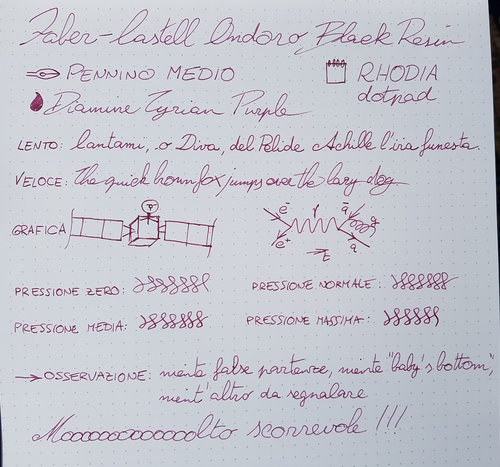 Faber-Castell Ondoro, Black Resin
PENNINO MEDIO
RHODIA
dotpad
Diamine Tyrian Purple
LENTO: Cantami, o Diva, del Pelide Achille l'ira funesta.
VELOCE: The quick brown fox jumps over the lazy dog
GRAFICA
e⁻ γ q̄ g
e⁺ t q
PRESSIONE ZERO:
PRESSIONE NORMALE:
PRESSIONE MEDIA:
PRESSIONE MASSIMA:
OSSERVAZIONE: niente false partenze, niente "baby's bottom",
nient'altro da segnalare
Moooooooooooolto scorrevole !!!